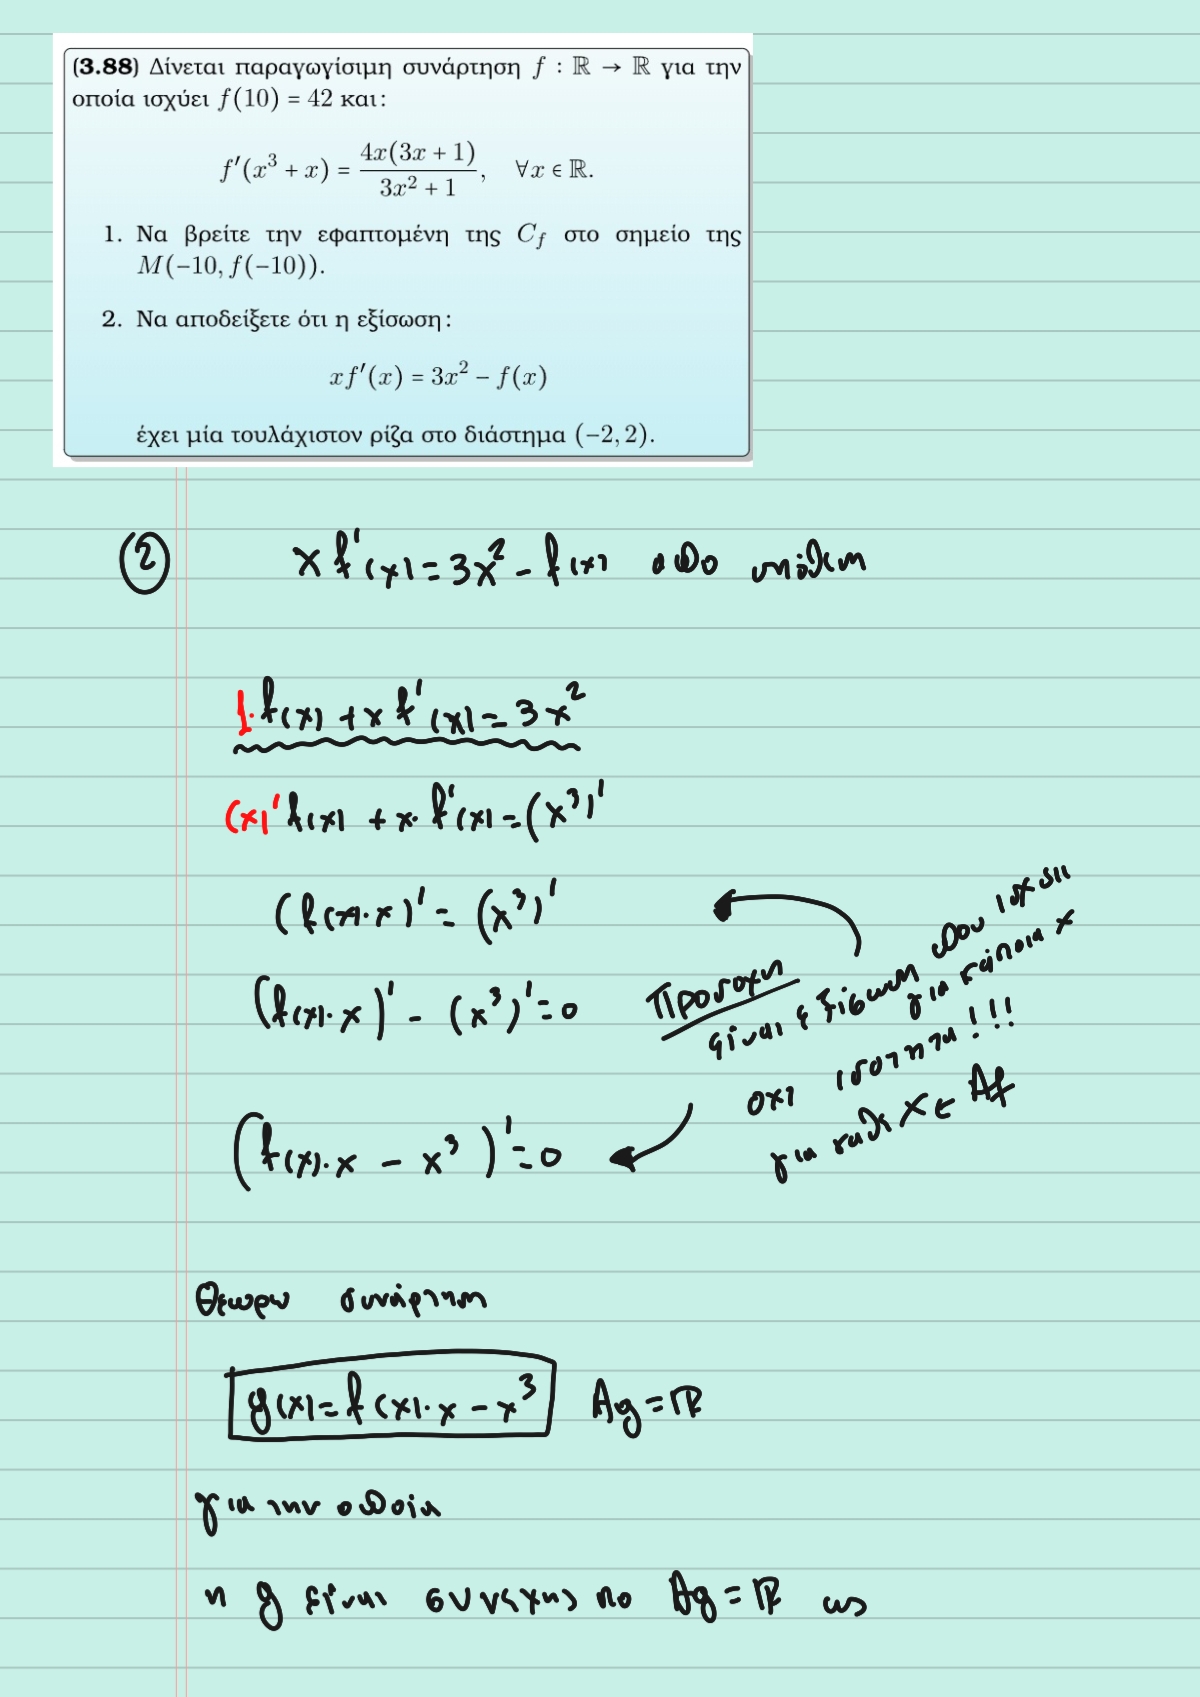 (3.88) Δίνεται παραγωγίσιμη συνάρτηση f : ℝ → ℝ για την
οποία ισχύει f(10) = 42 και:
f′(x³ + x) = 4x(3x + 1) / 3x² + 1, ∀x ∈ ℝ.
1. Να βρείτε την εφαπτομένη της C_f στο σημείο της
M(−10, f(−10)).
2. Να αποδείξετε ότι η εξίσωση:
xf′(x) = 3x² − f(x)
έχει μία τουλάχιστον ρίζα στο διάστημα (−2, 2).
② x f'(x) = 3x² - f(x) από υπόθεση
1·f(x) + x f'(x) = 3x²
(x)' f(x) + x· f'(x) = (x³)'
(f(x)·x)' = (x³)'
(f(x)·x)' - (x³)' = 0
Προσοχη
είναι εξίσωση που ισχύει
για κάποια x
οχι ισοτητα!!!
για καθε x ∈ Af
(f(x)·x - x³)' = 0
Θεωρω συνάρτηση
g(x) = f(x)·x - x³ Ag = ℝ
για την οποία
η g είναι συνεχης στο Ag = ℝ ως